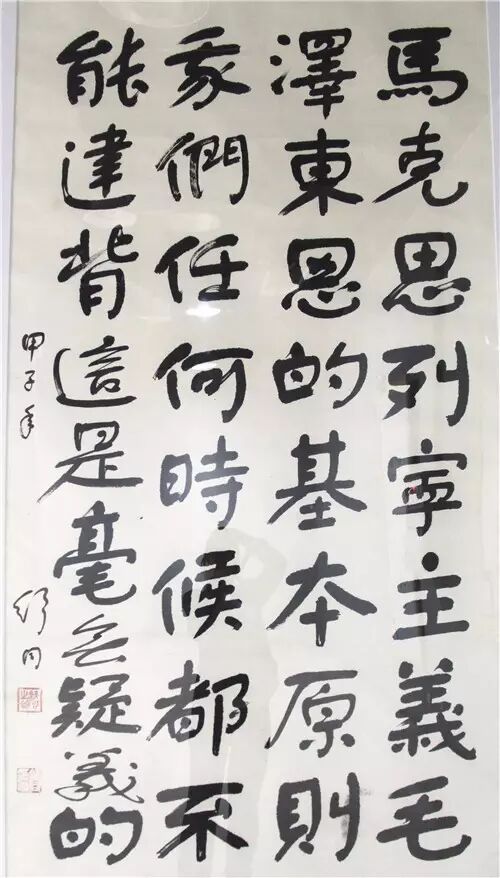 馬克思列寧主義毛
澤東恩的基本原則
我們任何時候都不
能違背這是毫无疑義的
甲子年
舒同